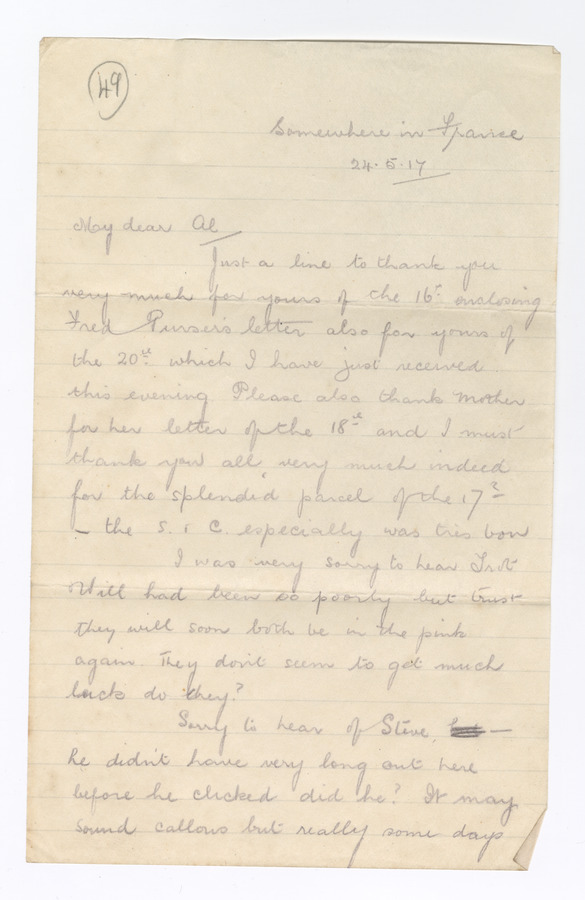 49
Somewhere in France
24.5.17
My dear Al
Just a line to thank you
very much for yours of the 16th enclosing
Fred Purser's letter also for yours of
the 20th which I have just received
this evening Please also thank Mother
for her letter of the 18th and I must
thank you all very much indeed
for the splendid parcel of the 17th
– the S. & C. especially was très bon
I was very sorry to hear Trot
Will had been so poorly but trust
they will soon both be in the pink
again. They don't seem to get much
luck do they?
Sorry to hear of Steve, —
he didn't have very long out here
before he clicked did he? It may
sound callous but really some days